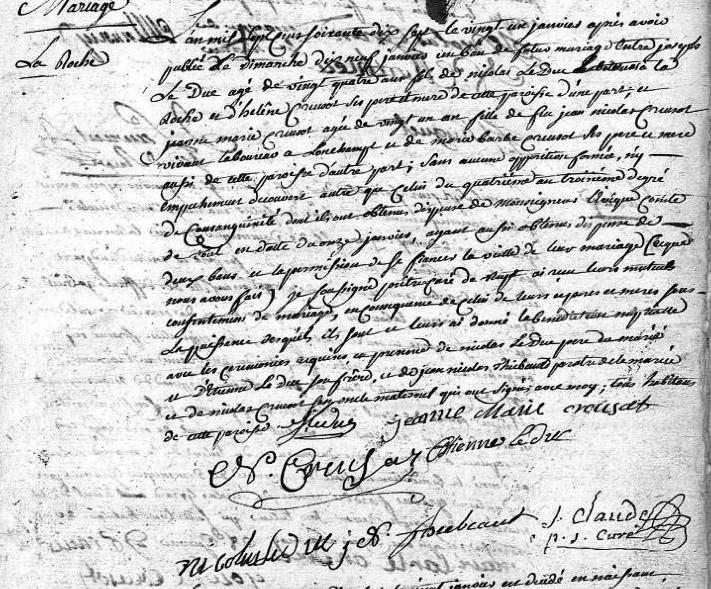 Mariage
La Roche
L'an mil sept cens soixante dix sept le vingt un janvier après avoir
publié le dimanche dix neuf janvier un ban de futur mariage entre joseph
Le Duc agé de vingt quatre ans fils de nicolas Le Duc a la
Roche et d'helene Crusot ses pere et mere de cette paroisse d'une part ; et
jeanne marie Crusot agée de vingt un an fille de feu jean nicolas Crusot
vivant laboureur a Lonchampt et de marie barbe Crusot ses pere et mere
aussi de cette paroisse d'autre part ; sans aucune opposition formée, ny
empechement decouvert autre que celui du quatrième au troisième degré
de Consanguinité dont ils ont obtenus dispense de Monseigneur l'Evêque Comte
de Toul en datte du onze janvier, ayant aussi obtenus dispense de
deux bans et la permission de se fiancer la veille de leur mariage (ce que
nous avons fait) je soussigné prêtre curé de Rupt ai reçu leurs mutuels
consentemens de mariage, en consequence de celui de leurs peres et meres sous
la puissance desquels ils sont et leur ai donné la benediction nuptialle
avec les ceremonies requises en presence de nicolas Le Duc pere du marié
et d'Etienne Le Duc son frère, et de jean nicolas Thiebaut parâtre de la mariée
et de nicolas Crusot son oncle maternel qui ont signés avec moy ; tous habitans
de cette paroisse. jeanne Marie crousat
N. Crusat Etienne le duc
nicolas le duc j N. thiebaut j. Claude
p. j. Curé